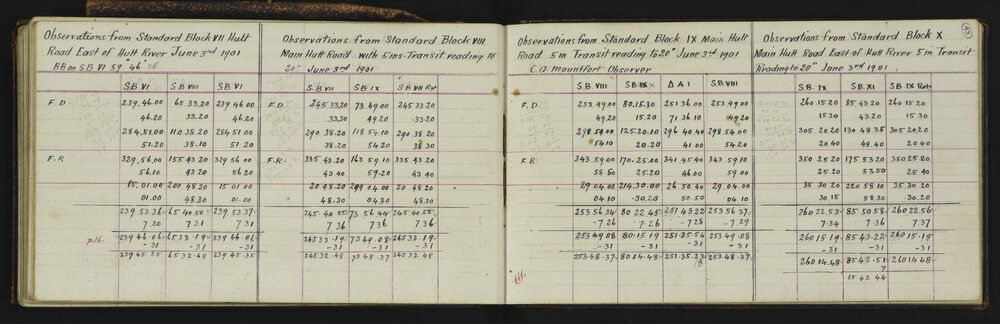 Observations from Standard Block VII Hutt
Road East of Hutt River June 3rd 1901
BB on S.B VI 59° 46'
S.B VI S.B VIII S.B VI
F.D. 239.46.00 65 33.20 239 46 00
46.20 33.20 46.20
284.51.00 110 38.20 284 51 00
51.20 38.10 51 20
F.R 329.56.00 155 43 20 329 56 00
56.10 43 20 56 20
15.01.00 200 48.20 15 01 00
01.00 48.30 01.00
239 53.36 65 40 50 239 53.37
7 30 7 31 7 31
p16. 239 46 06 65 33 19 239 46.06
-31 -31 -31
239 45.35 65 32 48 239 45.35
Observations from Standard Block VIII
Main Hutt Road with 5 ins Transit reading to
20" June 3rd 1901
S.B VII S.B IX S.B VII Ret
F.D. 245 33.20 73 49 00 245 33 20
33.30 49.20 33.20
290 38.20 118 54.10 290 38 20
38.20 54.20 38 30
F.R. 335 43.20 163 59 10 335 43 20
43 40 59.20 43 40
20 48.20 209 04.00 20 48.20
48.30 04.30 48.30
245.40 55 73 56 44 245 40 55
7 36 7 36 7 36
245 33.19 73 49.08 245 33 19
-31 -31 -31
245 32 48 73 48.37 245 32 48
Observations from Standard Block IX Main Hutt
Road 5 in Transit reading to 20" June 3rd 1901
C.A. Mountfort Observer
S.B. VIII S.B X Δ A I S.B VIII
F.D. 253 49.00 80.15.30 251 36 00 253 49.00
49.20 15.20 71 36 10 49.20
298 54.00 125.20.10 296 40 40 298 54 00
54.10 20.20 41 00 54.20
F.R 343 59.00 170.25.00 341 45 40 343 59.10
58.50 25.20 46 00 59.00
29 04.00 214.30.00 26 50 40 29.04.00
04.10 30.20 50.50 04.10
253 56 34 80 22 45 251 43 22 253 56 37
-7 26 -7 26 -7 28 -7 29
253 49 08 80.15 19 251.35.54 253 49.08
-31 -31 -31 -31
253.48.37 80 14.48 251.35.23 253 48.37
Observations from Standard Block X
Main Hutt Road East of Hutt River 5 in Transit
Reading to 20" June 3rd 1901
S.B. IX S.B. XI S.B IX Ret
260.15.20 85 43.20 260 15.20
15 30 43.20 15.30
305.20.20 130 48 35 305 20.20
20 40 48.40 20.40
350 25.20 175 53.20 350 25.20
25.20 53.50 25 40
35 30 20 220 58 10 35 30.20
30 15 58.30 30.20
260 22 53 85 50 58 260 22 56
7.34 7 36 7.37
260 15 19 85 43.22 260 15.19
-31 -31 -31
260 14.48 85 42.51 260 14.48
7
85 42 44